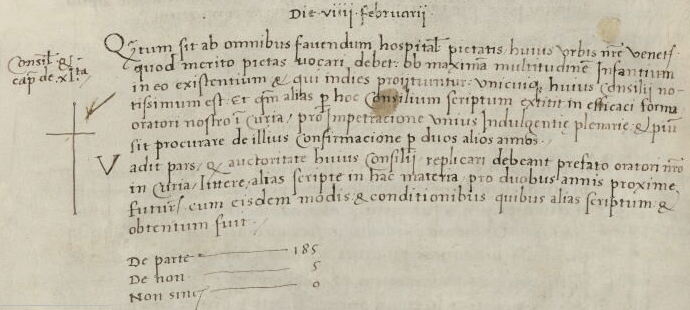 Die · viiii · februarii ·
Consil̃ &
cap̃ de · xl ·
Qᵃtum sit ab omnibus favendum hospital̃ pietatis · huius vrbis nr̃e veneť ·
quod merito pietas vocari debet: ob maximã multitudinẽ Infantium
in eo existentium & qui indies projitiuntur · vnicuiqȝ huius consilii no-
tissimum est: Et qm̃ alias ꝑ hoc Consilium scriptum extitit in efficaci forma
oratori nostro ĩ curia / pro Impetracione vnius Indulgentię plenarię: & piũ
sit procurare de illius confirmacione ꝑ duos alios annos ·
Vadit pars / qᵈ auctoritate huius Consilii · replicari debeant prefato oratori nr̃o
in Curia / littere / alias scripte in hac materia · pro duobus annis proxime
futur̃ / cum eisdem modis · & conditionibus quibus alias scriptum · &
obtentum fuit ·
De parte 185
De non 5
Non sinc̃ 0